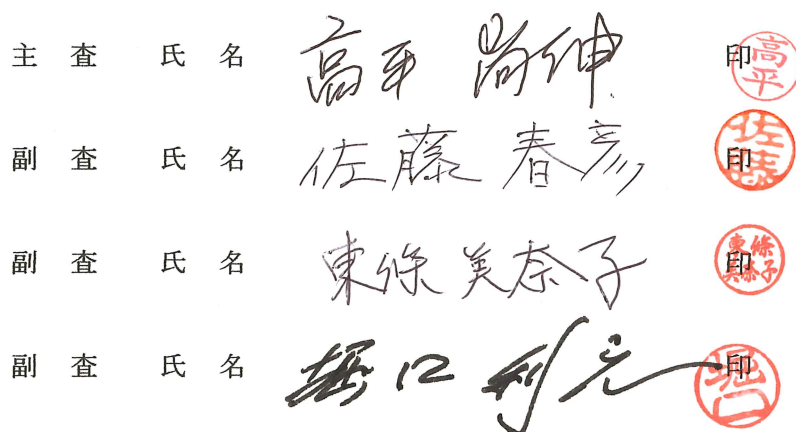 主査 氏名 高平 尚伸 印 高平
副査 氏名 佐藤 春彦 印 佐藤
副査 氏名 東條 美奈子 印 東條美奈子
副査 氏名 堀口 利之 印 堀口